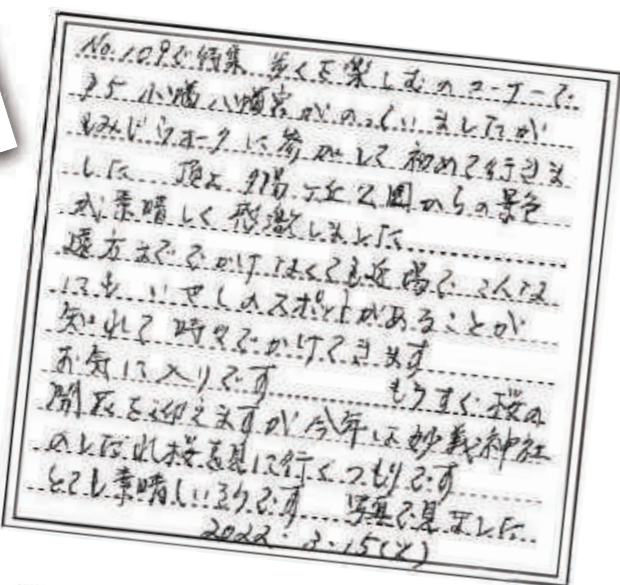 No.109で特集 歩くを楽しむのコーナーで
P5 小幡八幡宮がのっていましたが
もみじウォークに参加して初めて行きま
した 頂上 陽ヶ丘公園からの景色
が素晴しく感激しました
遠方まででかけなくても近場で こんな
にも いやしのスポットがあることが
知れて 時々でかけてきます
お気に入りです もうすぐ桜の
開花を迎えますが 今年は妙義神社
のしだれ桜を見に行くつもりです
とても素晴しい 写真で見ました
2022・3・15(火)